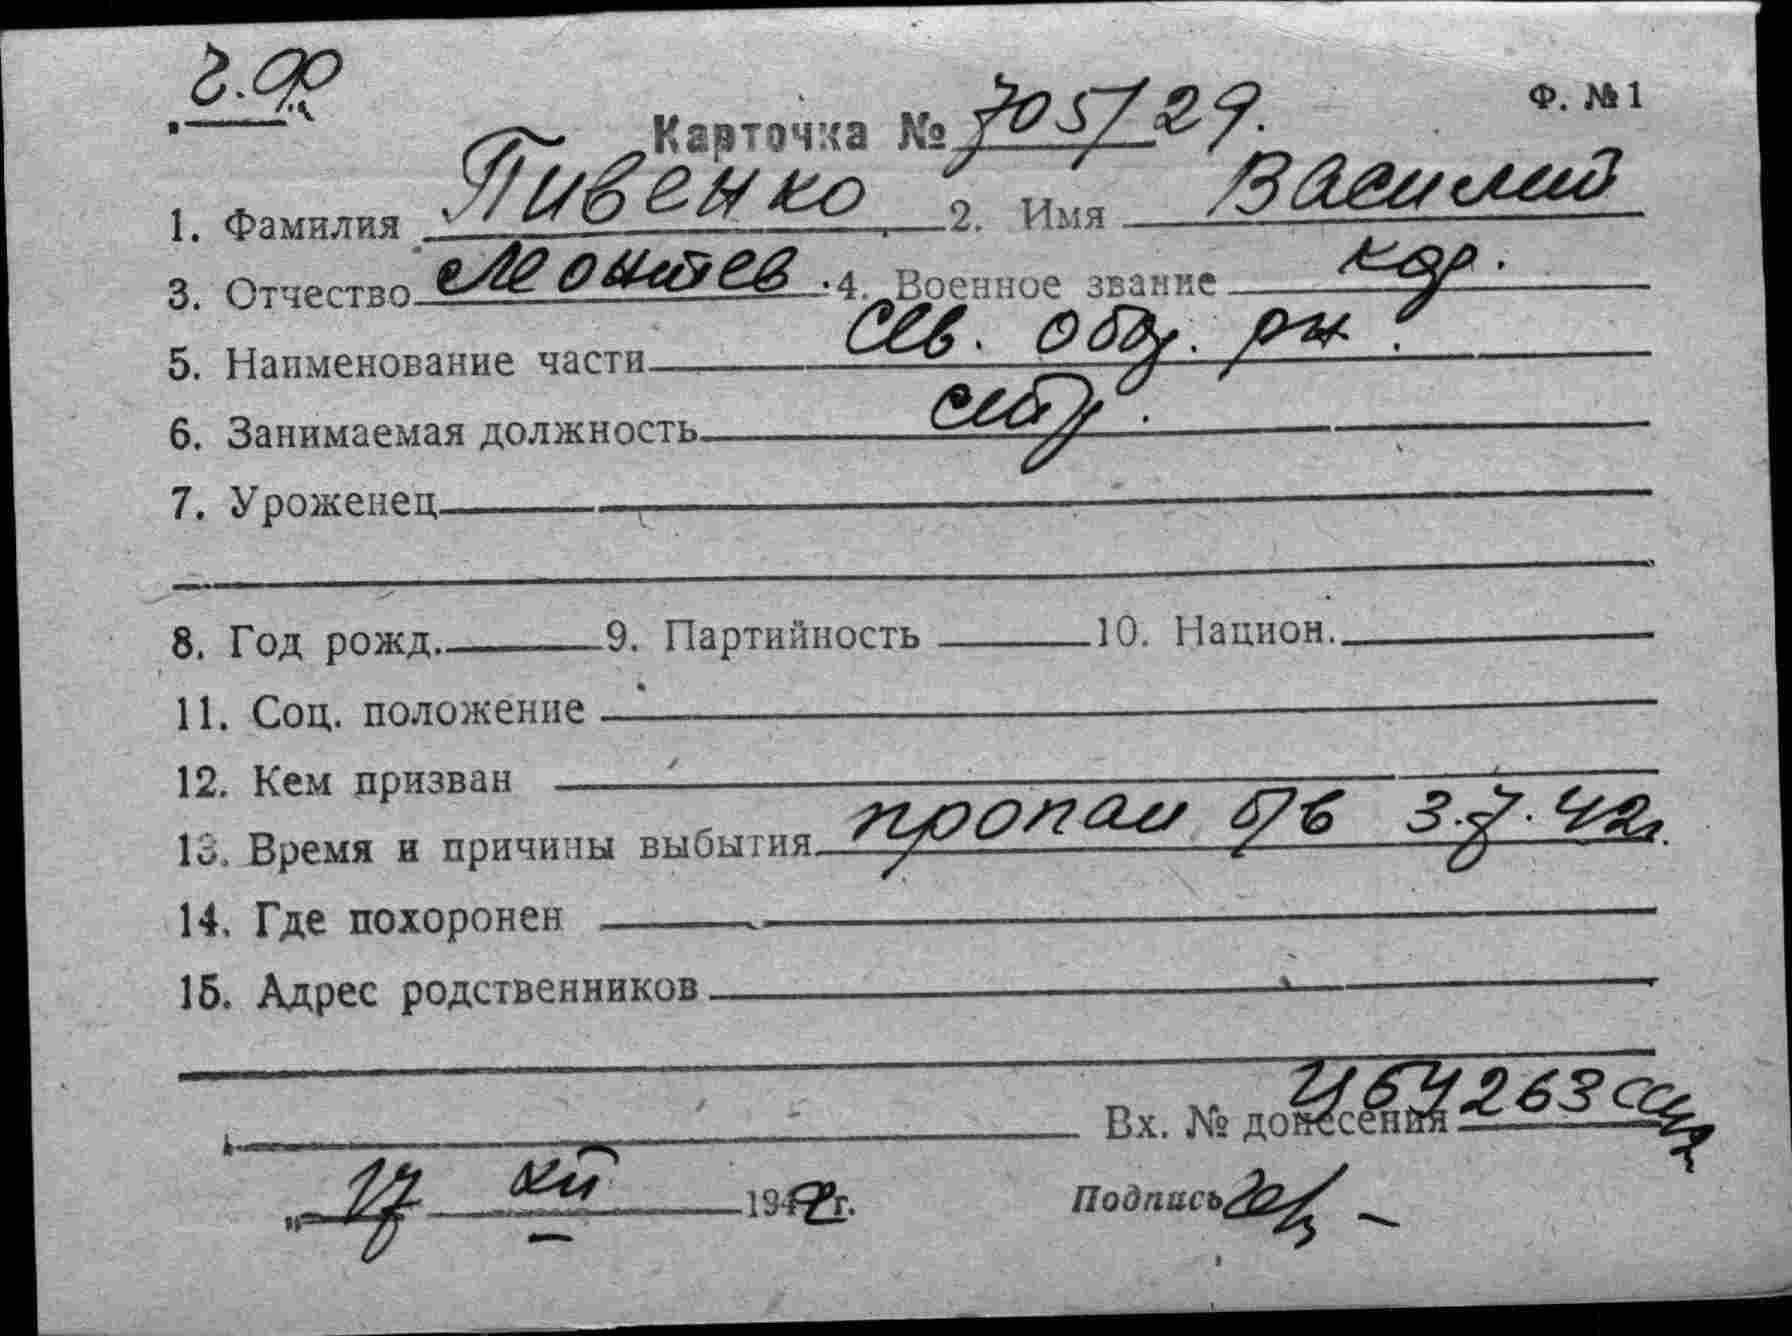 ч.ф.
Ф. № 1
Карточка № 705/29.
1. Фамилия Пивенко 2. Имя Василий
3. Отчество Леонтьев. 4. Военное звание кр.
5. Наименование части Сев. обор. рн.
6. Занимаемая должность стр.
7. Уроженец
8. Год рожд. 9. Партийность 10. Национ.
11. Соц. положение
12. Кем призван
13. Время и причины выбытия пропал б/в 3.7.42г.
14. Где похоронен
15. Адрес родственников
Вх. № донесения 263
„17 XII 1942 г. Подпись